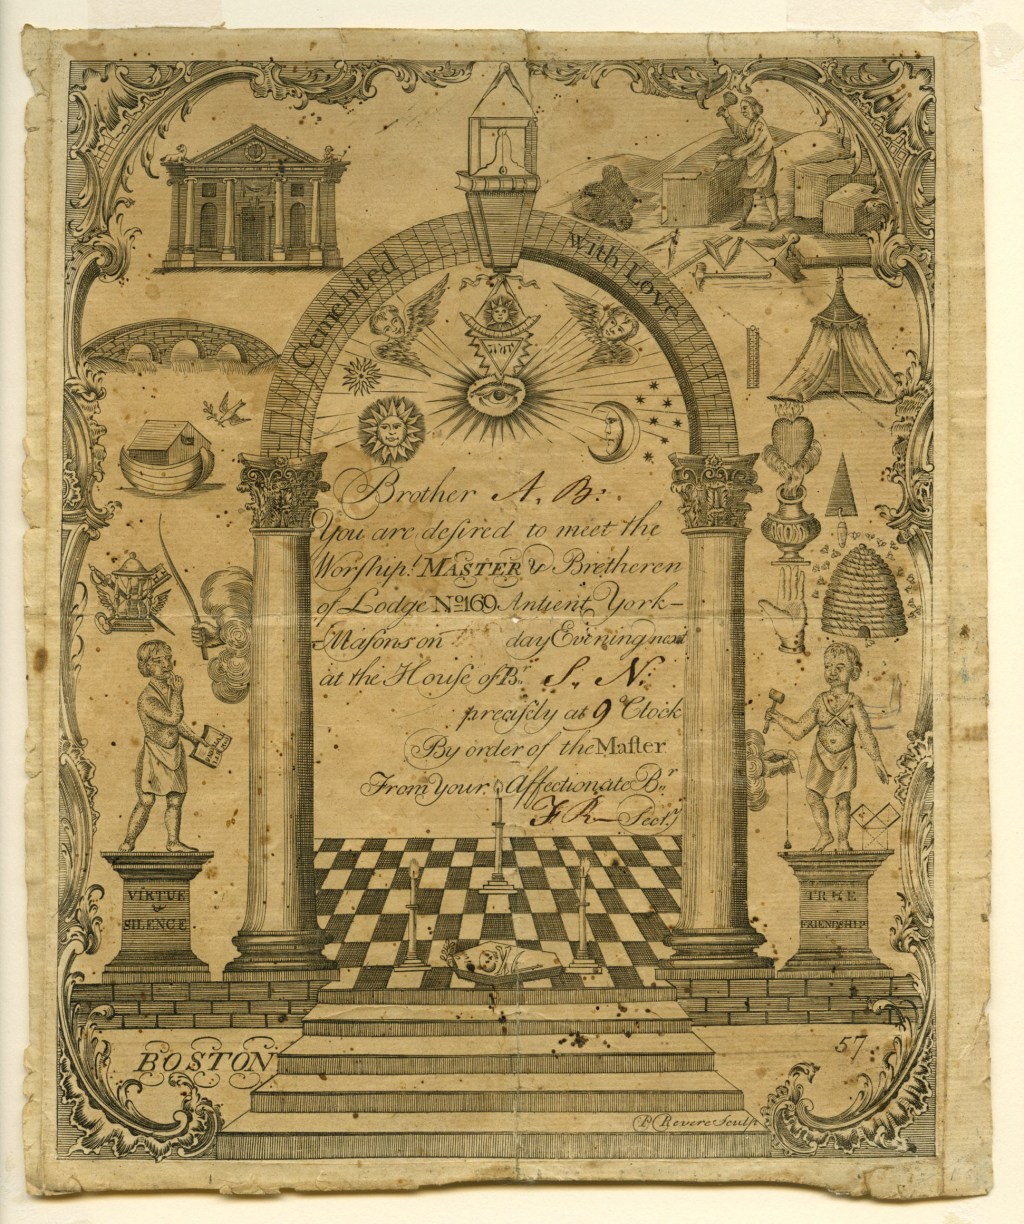 Cemented with Love
Brother A. B:
You are desired to meet the
Worship.l MASTER & Bretheren
of Lodge No 169 Antient York-
-Masons on day Evening next
at the House of Br S. N:
precisely at 9 o'Clock
By order of the Master
From Your Affectionate Br
F R— Secty
VIRTUE
&
SILENCE
TRUE
FRIENDSHIP
BOSTON
57
P Revere Sculp